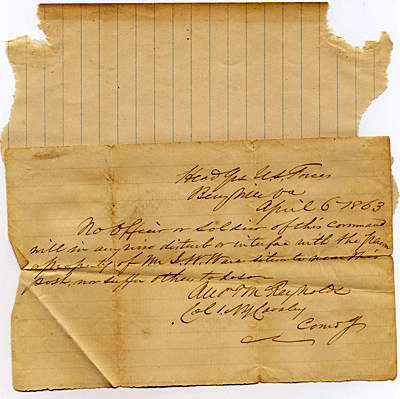 Head Qrs U.S. Forces
Berryville Va
April 6 1863
No Officer or Soldier of this command
will in any wise disturb or interfere with the farm
or property of Mr J. W. Ware situate near this
post, nor suffer others to do so
Andw T McReynolds
Col 1st N.Y. Cavalry
Comdg